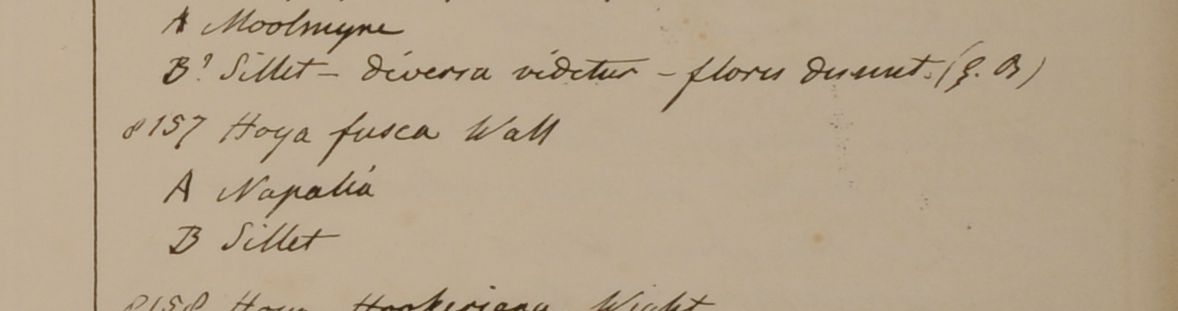 A Moolmyne
B? Sillet – diversa videtur – flores desunt. (G. B)
8157 Hoya fusca Wall
A Napalia
B Sillet
8158 Hoya Hookeriana Wight